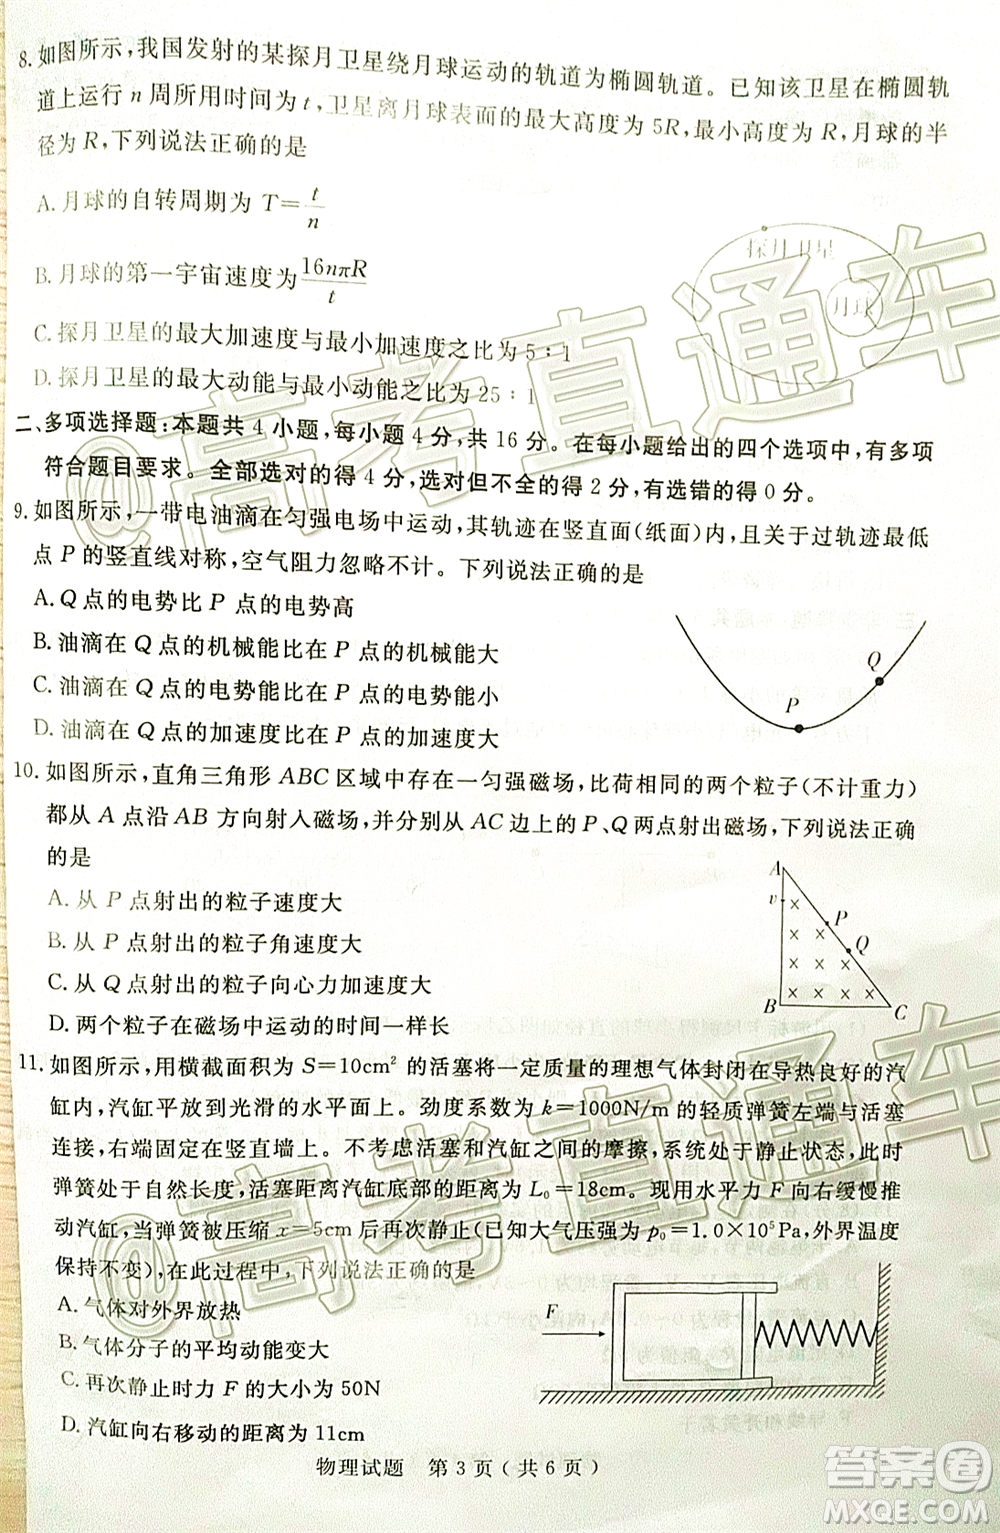 8. 如图所示,我国发射的某探月卫星绕月球运动的轨道为椭圆轨道。已知该卫星在椭圆轨
道上运行 n 周所用时间为 t,卫星离月球表面的最大高度为 5R,最小高度为 R,月球的半
径为 R,下列说法正确的是
A.月球的自转周期为 T=t/n
B.月球的第一宇宙速度为16nπR/t
C.探月卫星的最大加速度与最小加速度之比为 5∶1
D.探月卫星的最大动能与最小动能之比为 25∶1
探月卫星
月球
二、多项选择题:本题共 4 小题,每小题 4 分,共 16 分。在每小题给出的四个选项中,有多项
符合题目要求。全部选对的得 4 分,选对但不全的得 2 分,有选错的得 0 分。
9. 如图所示,一带电油滴在匀强电场中运动,其轨迹在竖直面(纸面)内,且关于过轨迹最低
点 P 的竖直线对称,空气阻力忽略不计。下列说法正确的是
A.Q 点的电势比 P 点的电势高
B.油滴在 Q 点的机械能比在 P 点的机械能大
C.油滴在 Q 点的电势能比在 P 点的电势能小
D.油滴在 Q 点的加速度比在 P 点的加速度大
P
Q
10. 如图所示,直角三角形 ABC 区域中存在一匀强磁场,比荷相同的两个粒子(不计重力)
都从 A 点沿 AB 方向射入磁场,并分别从 AC 边上的 P、Q 两点射出磁场,下列说法正确
的是
A.从 P 点射出的粒子速度大
B.从 P 点射出的粒子角速度大
C.从 Q 点射出的粒子向心力加速度大
D.两个粒子在磁场中运动的时间一样长
A
v
P
Q
B
C
11. 如图所示,用横截面积为 S=10cm² 的活塞将一定质量的理想气体封闭在导热良好的汽
缸内,汽缸平放到光滑的水平面上。劲度系数为 k=1000N/m 的轻质弹簧左端与活塞
连接,右端固定在竖直墙上。不考虑活塞和汽缸之间的摩擦,系统处于静止状态,此时
弹簧处于自然长度,活塞距离汽缸底部的距离为 L₀=18cm。现用水平力 F 向右缓慢推
动汽缸,当弹簧被压缩 x=5cm 后再次静止(已知大气压强为 p₀=1.0×10⁵Pa,外界温度
保持不变),在此过程中,下列说法正确的是
A.气体对外界放热
B.气体分子的平均动能变大
C.再次静止时力 F 的大小为 50N
D.汽缸向右移动的距离为 11cm
F
物理试题 第 3 页(共 6 页)
@高考直通车
@高考直通车
答案圈
MXQE.COM